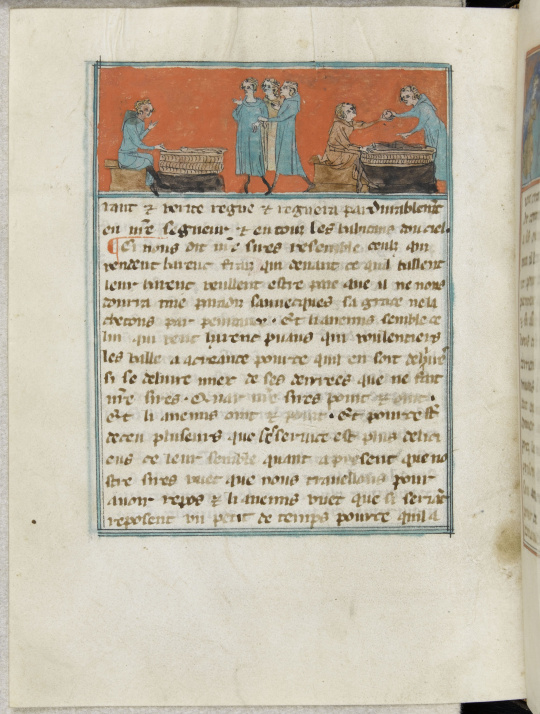 rant & verite regne & regnera pardurablemt
en nre segneur & en touz les habitans du ciel.
Ci nous dit nre sires resemble ceulz qui
vendent harenc frais qui devant ce quil baillent
leur harenc veullent estre paie que il ne nous
donrra mie paradis sauvecques sa grace ne la
chetons par penitance. Et li anemis semble ce
lui qui vent harenc puans qui voulentiers
les baille a acreance pource quil en soit delivre
si se delivre miex de ses denrees que ne fait
nre sires. Quar nre sires point & oint.
Et li anemis oint & point. Et pource
decoit pluseurs que service est plus delici
eus ce leur semble quant a present que no
stre sires vuet que nous travellons pour
avoir repos & li anemis vuet que si seriant
reposent un petit de temps pource quil a